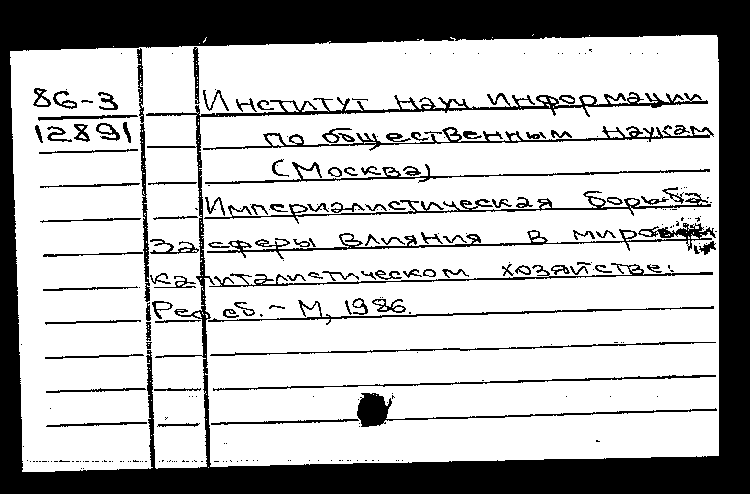 86-3 Институт науч. информации
12891 по общественным наукам
(Москва)
Империалистическая борьба
за сферы влияния в мировом
капиталистическом хозяйстве:
Реф. сб. - М, 1986.